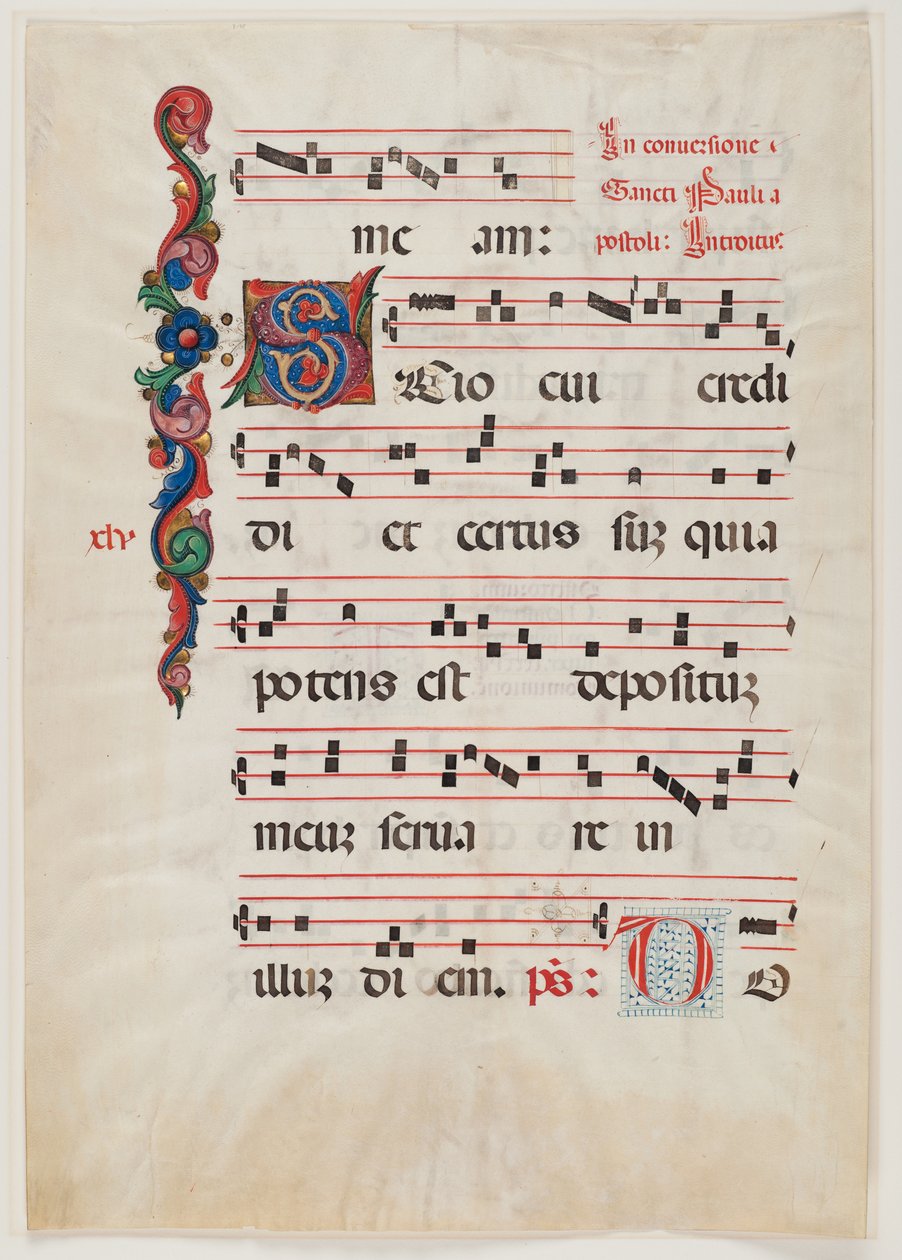 me am:
In conuersione
Sancti Pauli a
postoli: Introitus.
SCio cui credi
di et certus suz quia
xlv
potens est deposituz
meuz serua re in
illuz di em. ps: D O